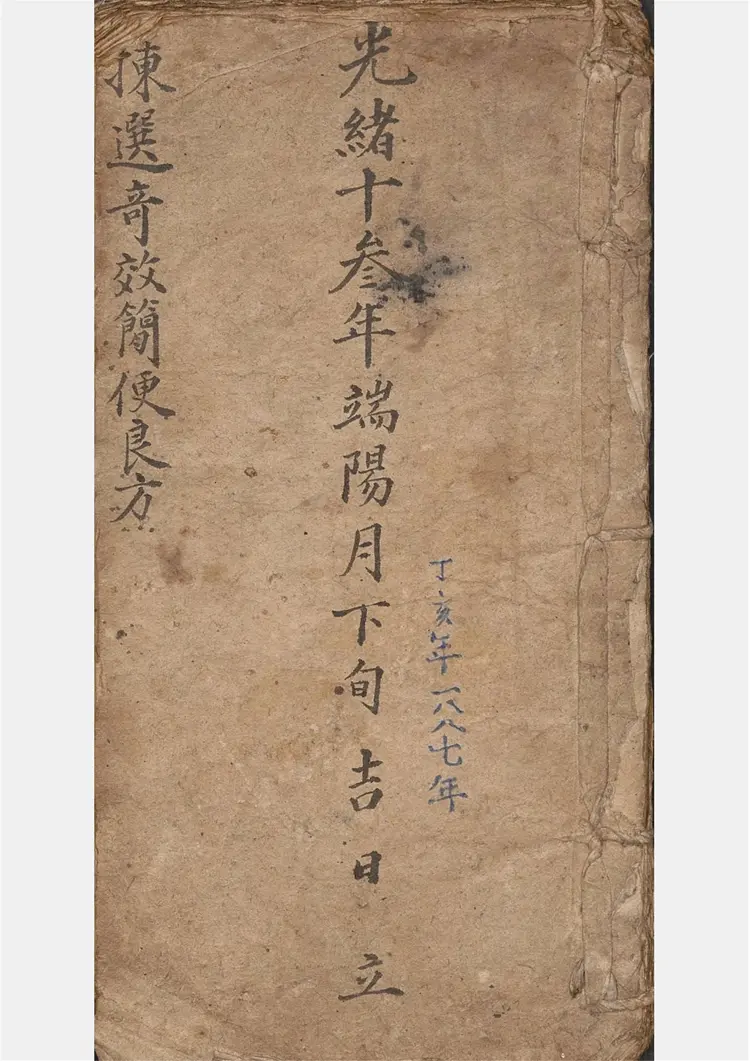 丁亥年一八八七年
光緒十叁年端陽月下旬吉日立
揀選奇效簡便良方